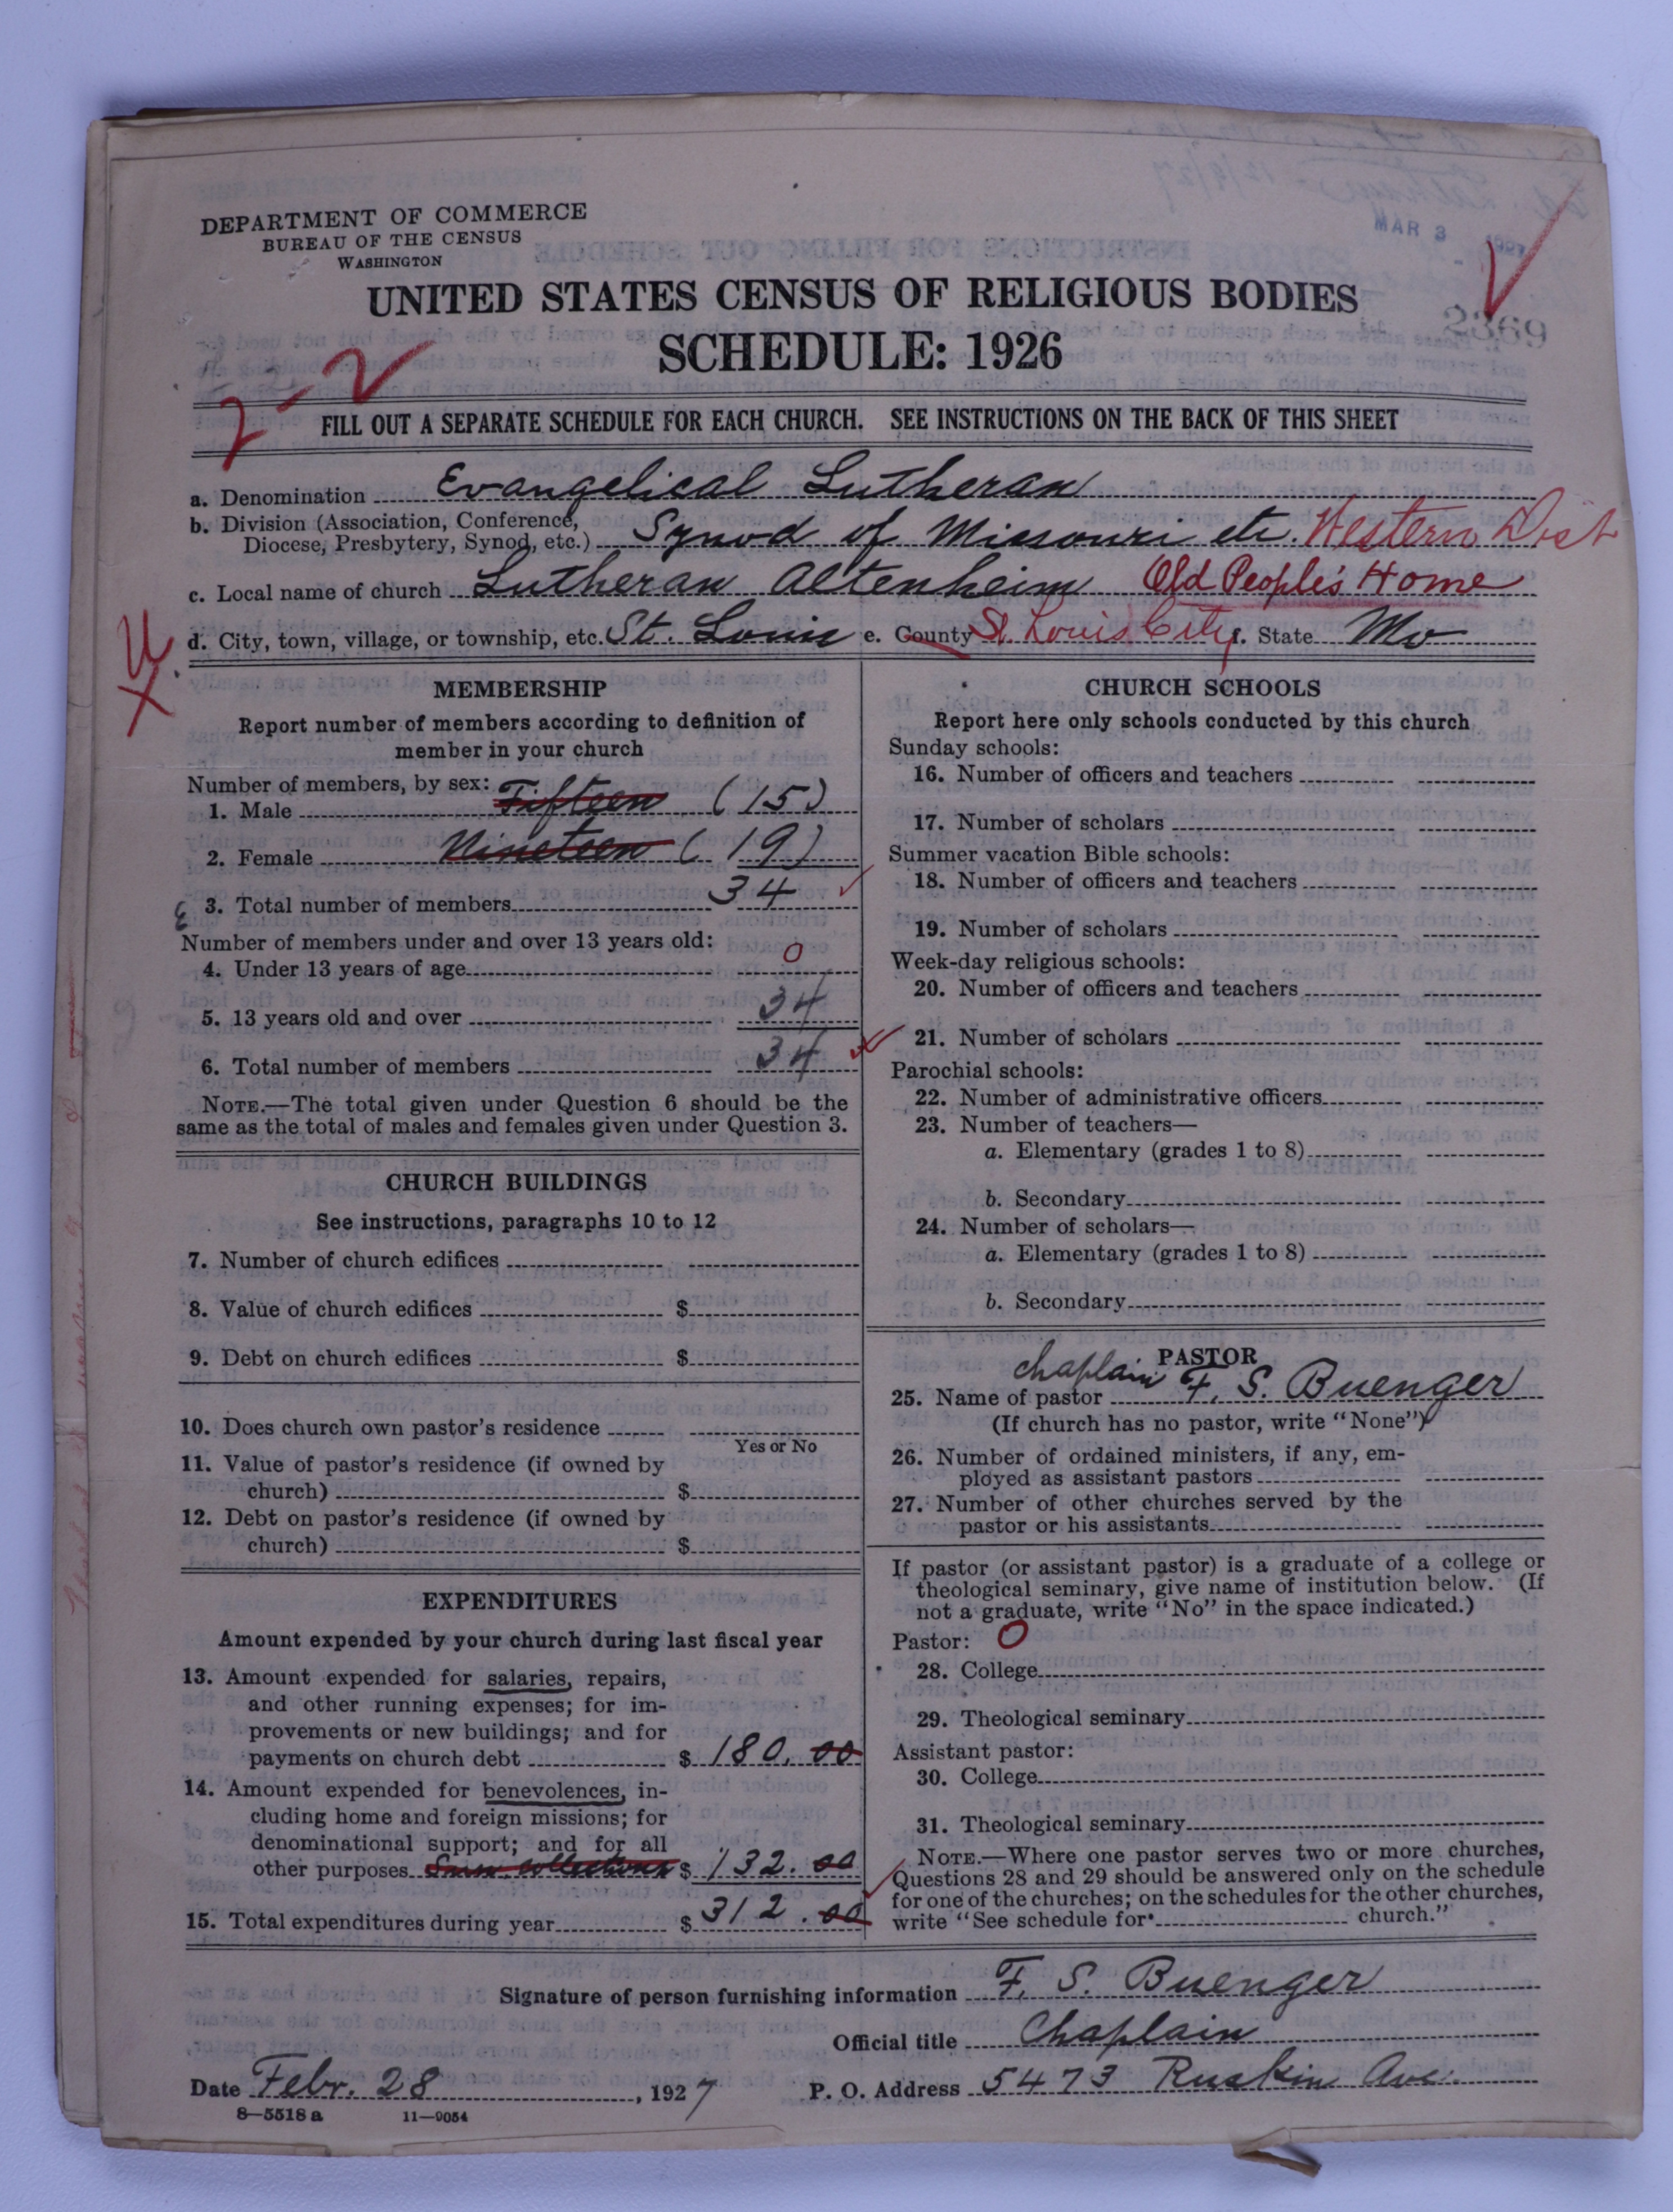 DEPARTMENT OF COMMERCE
BUREAU OF THE CENSUS
WASHINGTON
MAR 3 1927
UNITED STATES CENSUS OF RELIGIOUS BODIES
2369
SCHEDULE: 1926
2-2
FILL OUT A SEPARATE SCHEDULE FOR EACH CHURCH. SEE INSTRUCTIONS ON THE BACK OF THIS SHEET
a. Denomination Evangelical Lutheran
b. Division (Association, Conference,
Diocese, Presbytery, Synod, etc.) Synod of Missouri etc. Western Dist
c. Local name of church Lutheran Altenheim Old People's Home
d. City, town, village, or township, etc. St. Louis e. County St Louis City f. State Mo
U
X
MEMBERSHIP
Report number of members according to definition of
member in your church
Number of members, by sex:
1. Male Fifteen (15)
2. Female Nineteen (19)
3. Total number of members 34
Number of members under and over 13 years old:
4. Under 13 years of age 0
5. 13 years old and over 34
6. Total number of members 34
NOTE.—The total given under Question 6 should be the
same as the total of males and females given under Question 3.
CHURCH BUILDINGS
See instructions, paragraphs 10 to 12
7. Number of church edifices
8. Value of church edifices $
9. Debt on church edifices $
10. Does church own pastor's residence
Yes or No
11. Value of pastor's residence (if owned by
church) $
12. Debt on pastor's residence (if owned by
church) $
EXPENDITURES
Amount expended by your church during last fiscal year
13. Amount expended for salaries, repairs,
and other running expenses; for im-
provements or new buildings; and for
payments on church debt $ 180.00
14. Amount expended for benevolences, in-
cluding home and foreign missions; for
denominational support; and for all
other purposes collections $ 132.00
15. Total expenditures during year $ 312.00
CHURCH SCHOOLS
Report here only schools conducted by this church
Sunday schools:
16. Number of officers and teachers
17. Number of scholars
Summer vacation Bible schools:
18. Number of officers and teachers
19. Number of scholars
Week-day religious schools:
20. Number of officers and teachers
21. Number of scholars
Parochial schools:
22. Number of administrative officers
23. Number of teachers—
a. Elementary (grades 1 to 8)
b. Secondary
24. Number of scholars—
a. Elementary (grades 1 to 8)
b. Secondary
PASTOR
25. Name of pastor Chaplain F. S. Buenger
(If church has no pastor, write "None")
26. Number of ordained ministers, if any, em-
ployed as assistant pastors
27. Number of other churches served by the
pastor or his assistants
If pastor (or assistant pastor) is a graduate of a college or
theological seminary, give name of institution below. (If
not a graduate, write "No" in the space indicated.)
Pastor: O
28. College
29. Theological seminary
Assistant pastor:
30. College
31. Theological seminary
NOTE.—Where one pastor serves two or more churches,
Questions 28 and 29 should be answered only on the schedule
for one of the churches; on the schedules for the other churches,
write "See schedule for church."
Signature of person furnishing information F. S. Buenger
Official title Chaplain
Date Febr. 28, 1927 P. O. Address 5473 Ruskin Ave.
8—5518 a 11—9054